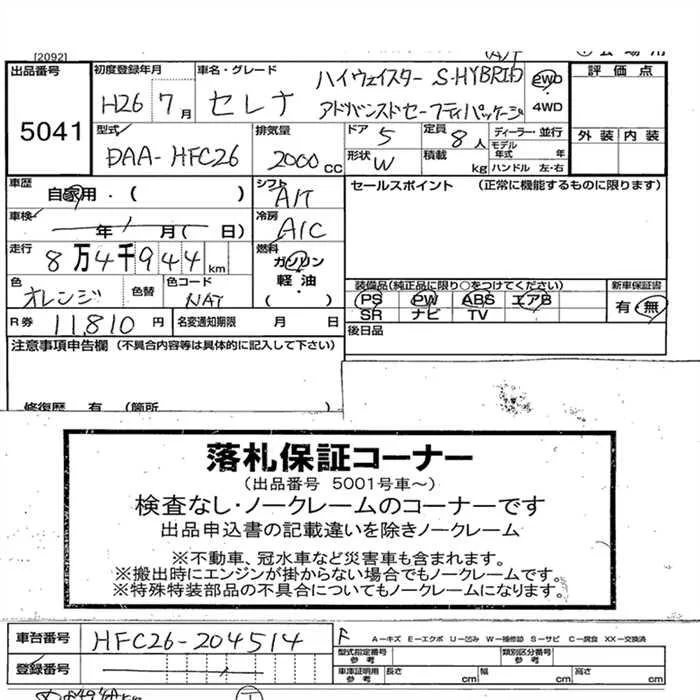 [2092]
出品番号 5041
初度登録年月 H26 7月
車名・グレード セレナ ハイウェイスター S-HYBRID アドバンスドセーフティパッケージ
2WD
4WD
評価点
外装 内装
型式 DAA-HFC26
排気量 2000 CC
ドア 5
定員 8人
形状 W
積載 kg
ディーラー・並行
モデル年式 年
ハンドル 左・右
車歴 自家用・( )
シフト A/T
車検 年 月( 日)
冷房 A/C
走行 8万4千944 km
燃料 ガソリン
軽・油
( )
色 オレンジ
色替
色コード NAT
R券 11,810 円
名変通知期限 月 日
セールスポイント (正常に機能するものに限ります)
装備品(純正品に限り○をつけてください)
PS PW ABS エアB
SR ナビ TV
新車保証書
有・無
後日品
注意事項申告欄 (不具合内容等は具体的に記入して下さい)
修復歴 有 (箇所
落札保証コーナー
(出品番号 5001号車~)
検査なし・ノークレームのコーナーです
出品申込書の記載違いを除きノークレーム
※不動車、冠水車など災害車も含まれます。
※搬出時にエンジンが掛からない場合でもノークレームです。
※特殊特装部品の不具合についてもノークレームになります。
車台番号 HFC26-204514
登録番号
F
A-キズ E-エクボ U-凹み W-補修跡 S-サビ C-腐食 XX-交換済
型式指定番号 参考
類別区分番号 参考
車庫証明用 参考 長さ cm 幅 cm 高さ cm